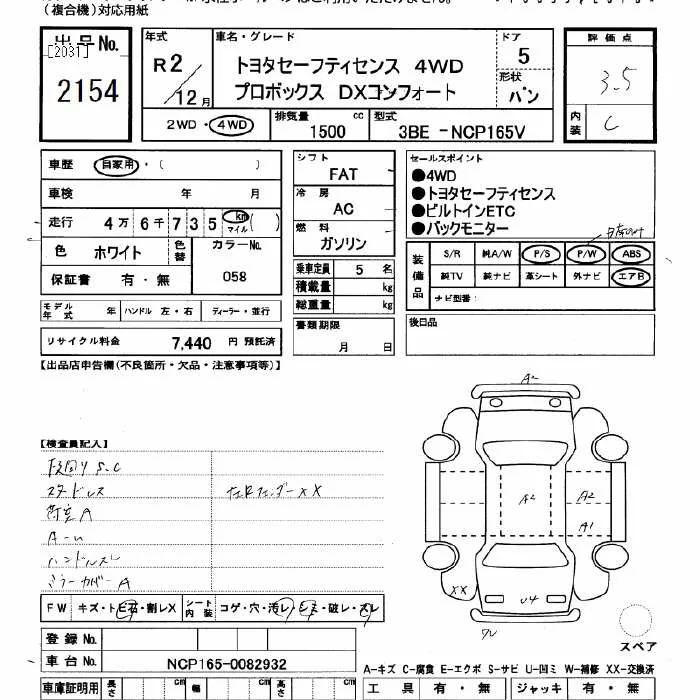 (複合機)対応用紙
出品No.
[2031]
2154
年式
R2/12月
車名・グレード
トヨタセーフティセンス 4WD
プロボックス DXコンフォート
ドア
5
形状
バン
2WD・4WD
排気量
1500 cc
型式
3BE-NCP165V
評価点
3.5
内装
C
車歴 自家用・( )
車検 年 月
走行 4万6千735 km マイル ( )
色 ホワイト 色替 カラーNo.
058
保証書 有・無
モデル年式 年 ハンドル 左・右 ディーラー・並行
リサイクル料金 7,440 円 預託済
シフト
FAT
冷房
AC
燃料
ガソリン
乗車定員 5 名
積載量 kg
総重量 kg
書類期限
月 日
セールスポイント
●4WD
●トヨタセーフティセンス
●ビルトインETC
●バックモニター
装備品
S/R 純A/W P/S P/W ABS
純TV 純ナビ 革シート 外ナビ エアB
ナビ型番:
後日品
【出品店申告欄(不良箇所・欠品・注意事項等)】
【検査員記入】
下回りS.C
スタッドレス
左Rフェンダー××
荷室A
A-U
ハンドルスレ
ミラーカバーA
A2
A2
A2
A1
XX
U4
FW キズ・トビ石・割レX シート内装 コゲ・穴・汚レ・シミ・破レ・スレ
スペア
登録No.
車台No. NCP165-0082932
A-キズ C-腐食 E-エクボ S-サビ U-凹ミ W-補修 XX-交換済
車庫証明用 長さ cm 幅 cm 高さ cm
工具 有・無 ジャッキ 有・無